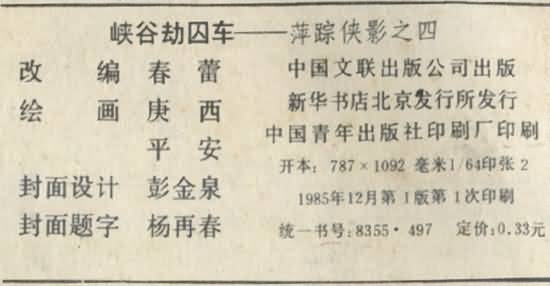 峡谷劫囚车——萍踪侠影之四
改编 春蕾
绘画 庚西
平安
封面设计 彭金泉
封面题字 杨再春
中国文联出版公司出版
新华书店北京发行所发行
中国青年出版社印刷厂印刷
开本：787×1092 毫米1/64印张2
1985年12月第1版第1次印刷
统一书号：8355·497 定价：0.33元